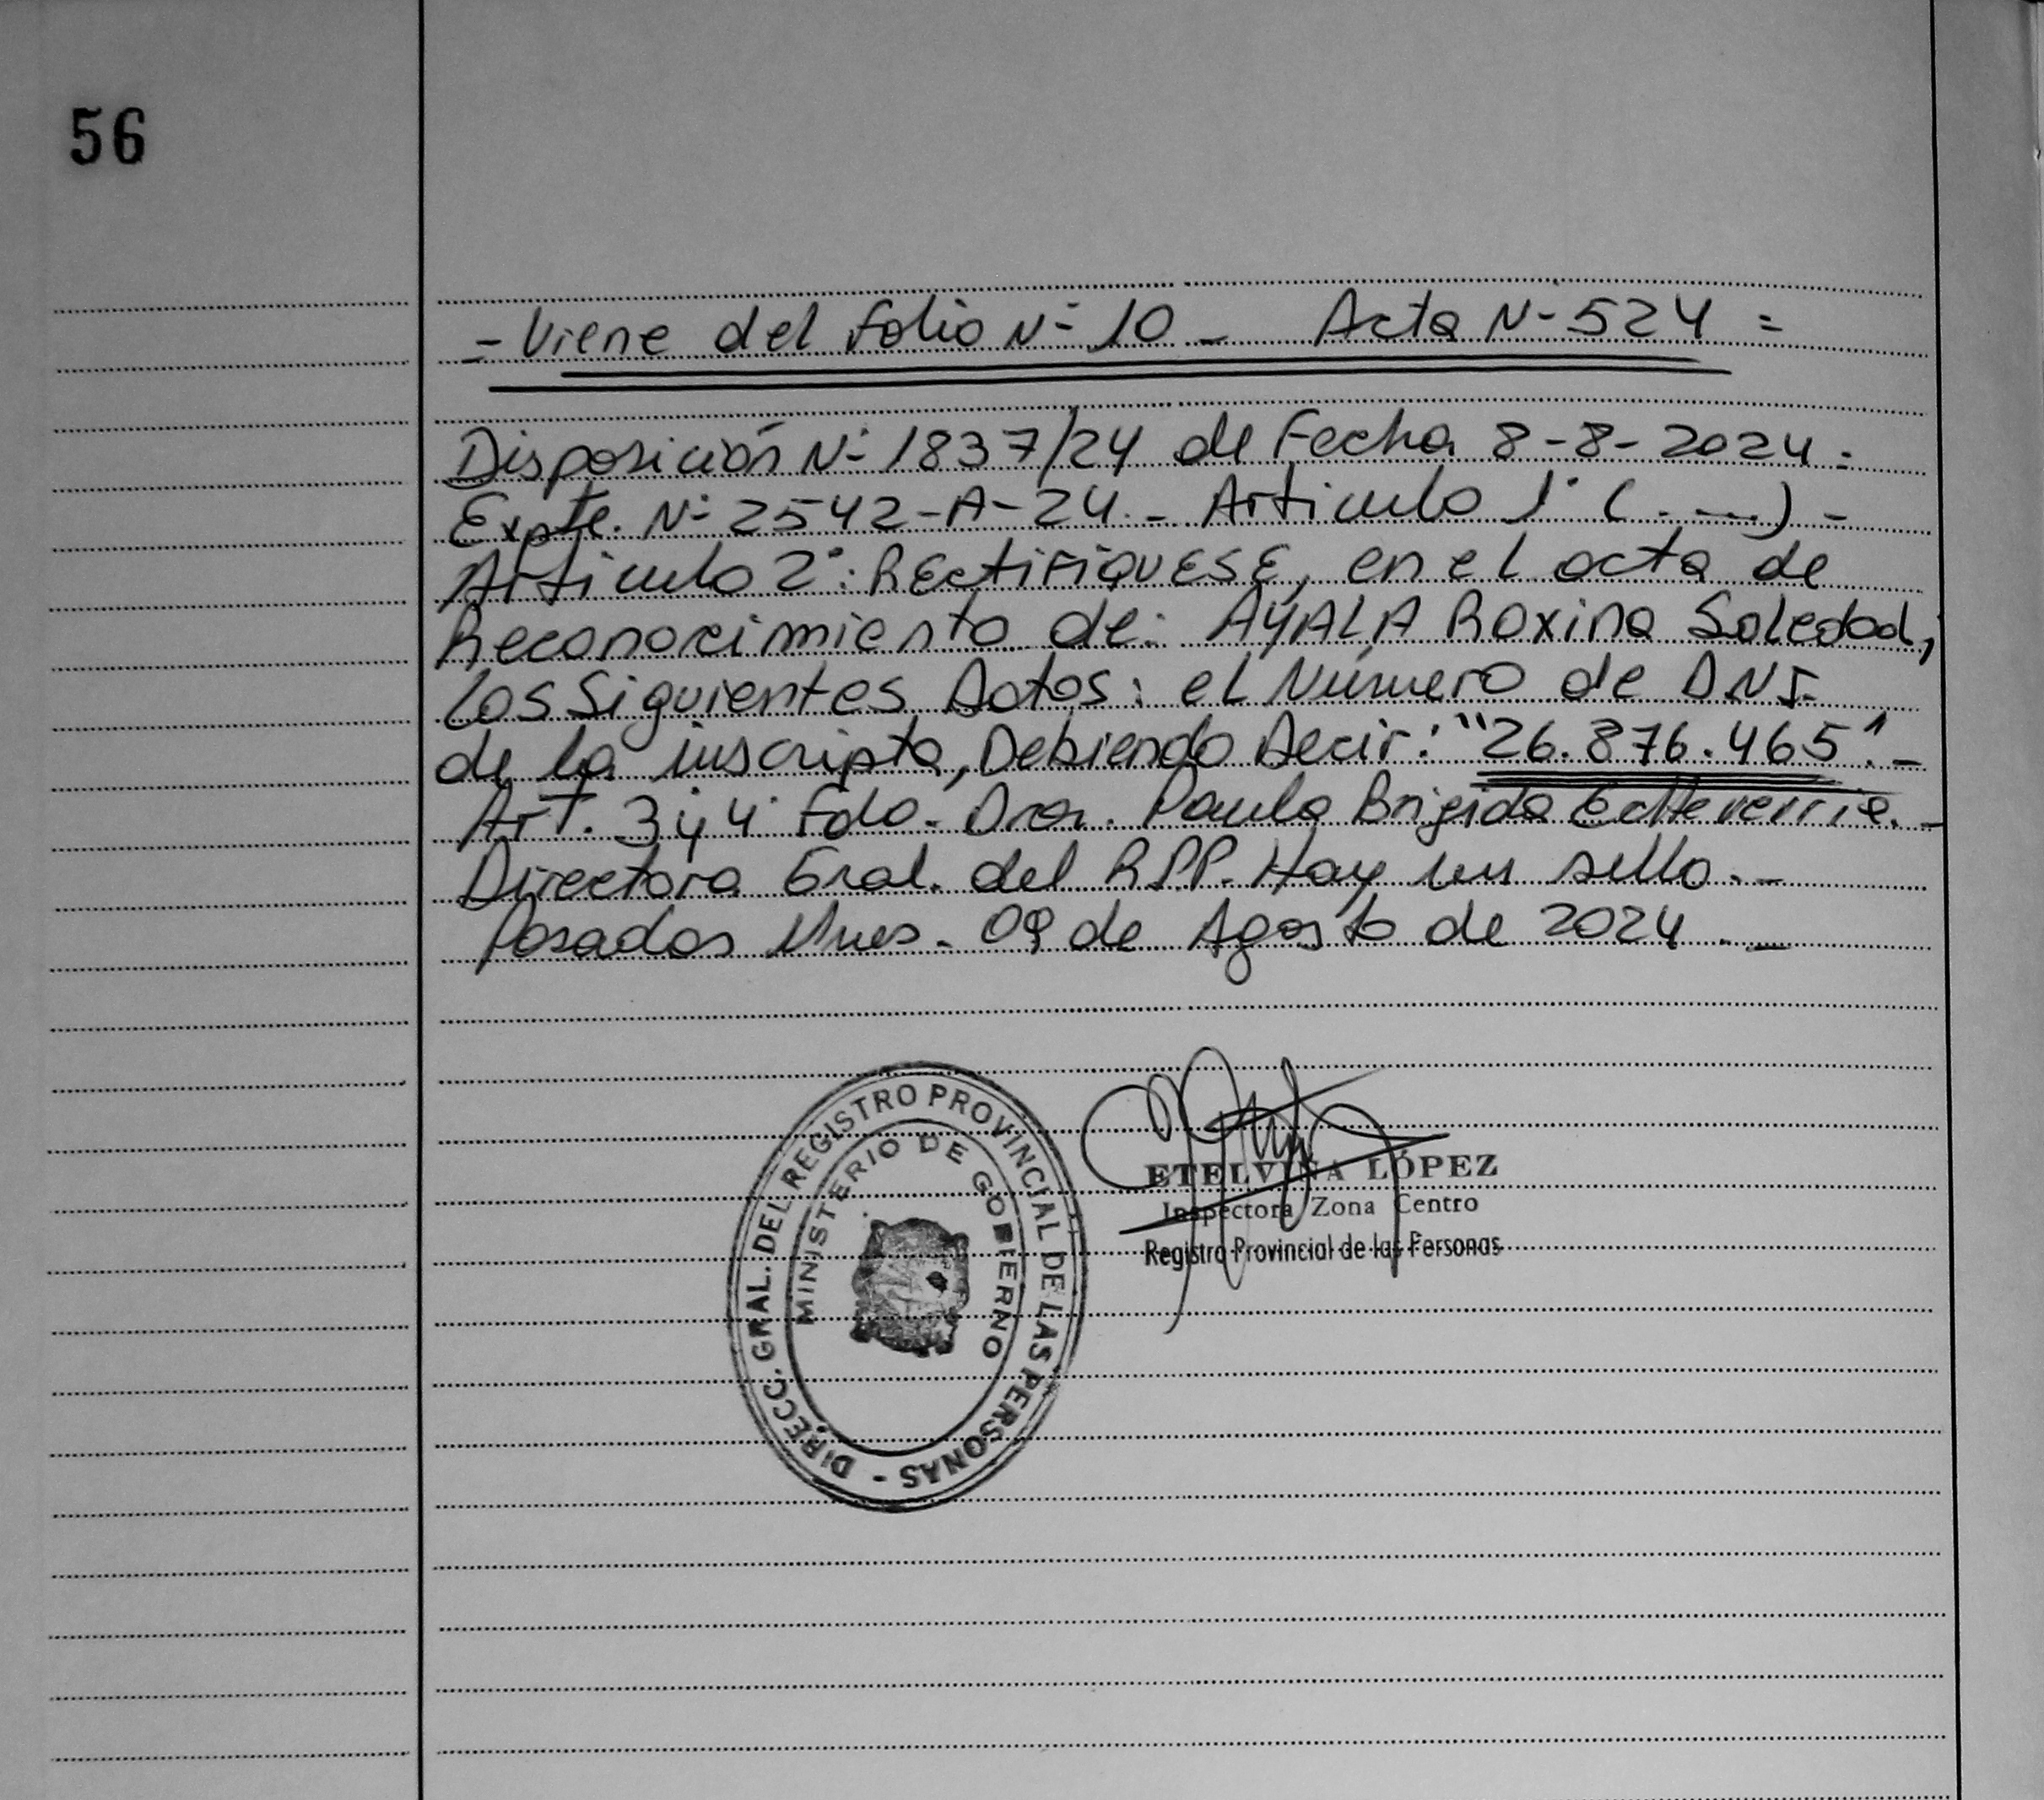 56
- Viene del folio N° 10 - Acta N° 524 =
Disposición N° 1837/24 de Fecha 8-8-2024.
Expte. N° 2542-A-24.- Articulo 1° (....) -
Articulo 2°: REctifiQUESE, en el acta de
Reconocimiento de: AYALA Roxina Soledad,
los Siguientes Datos: el Número de DNI.
de la inscripta, Debiendo Decir: "26.876.465".-
Art. 3 y 4 Fdo. Dra. Paula Brigida Echeverria.-
Directora Gral. del R.P.P. Hay un sello.-
Posadas Mnes. 09 de Agosto de 2024.-
DIRECC. GRAL. DEL REGISTRO PROVINCIAL DE LAS PERSONAS -
MINISTERIO DE GOBIERNO
ETELVINA LÓPEZ
Inspectora Zona Centro
Registro Provincial de las Personas